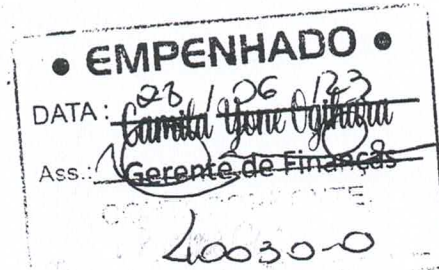 • EMPENHADO •
DATA: 28 / 06 / 23
Camila Yone Ogihara
Ass.: Gerente de Finanças
40030-0